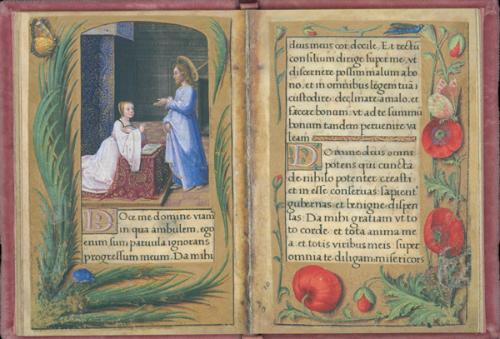 DOce me domine viam
in qua ambulem, ego
enim sum paruula ignorans
progressum meum. Da mihi
deus meus cor docile. Et rectū
consilium dirige super me, vt
discernere possim malum a bo
no, et in omnibus legem tuā
custodire, declinare a malo, et
facere bonum, vt ad te summū
bonum tandem peruenire va
leam.
DOmine deus omni
potens qui cuncta
de nihilo potenter creasti
et in esse conseruas: sapient'
gubernas et benigne dispen
sas. Da mihi gratiam vt to
to corde et tota anima me
a et totis viribus meis super
omnia te diligam, misericors